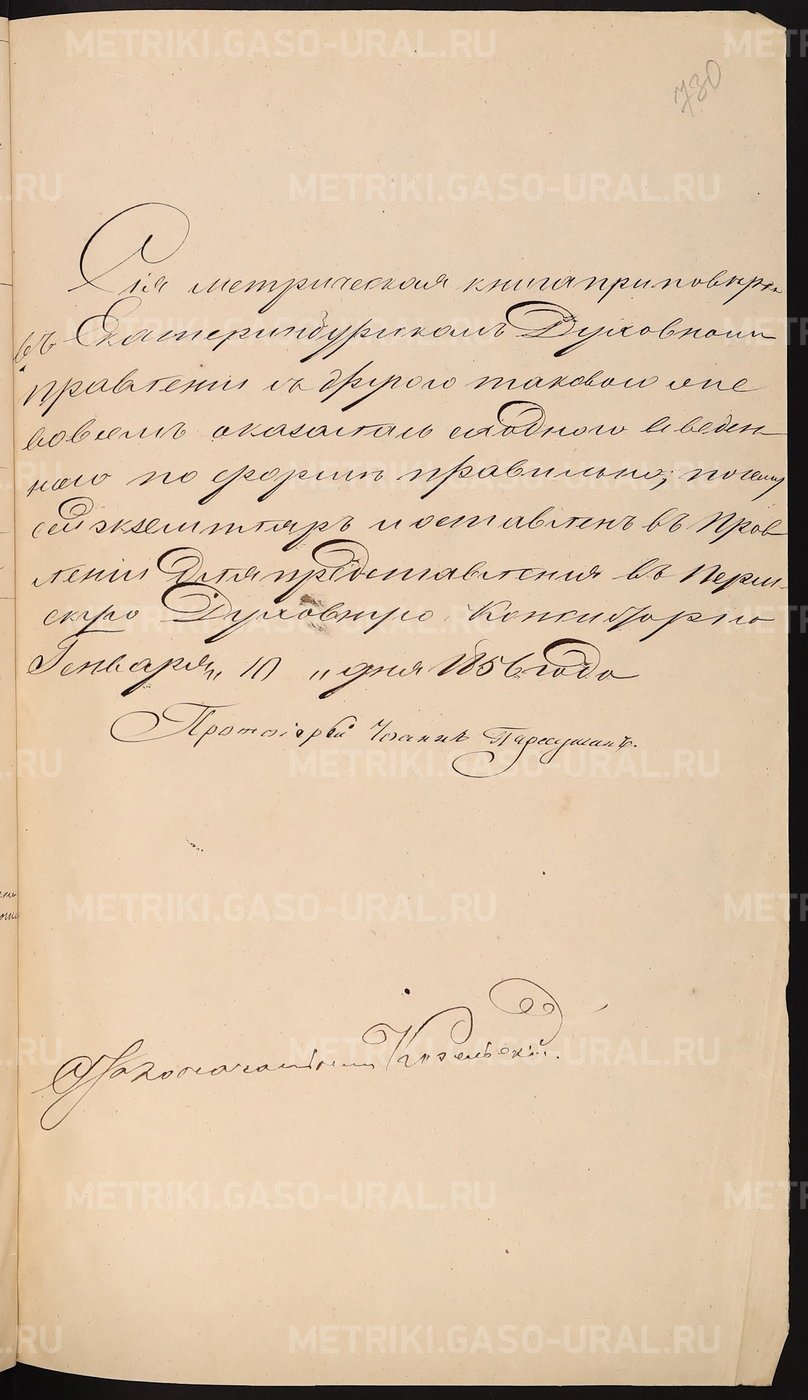 730
Сія метрическая книга при поверке
въ Екатеринбургскомъ Духовномъ
правленіи съ другою таковою же
вовсемъ оказалась сходною и веден-
ною по форме правильно; почему
сей экземпляръ и оставленъ въ Прав-
леніи для представленія въ Перм-
скую Духовную Консисторію
Генваря „ 10 „ дня 1856 года
Протоіерей Іоаннъ